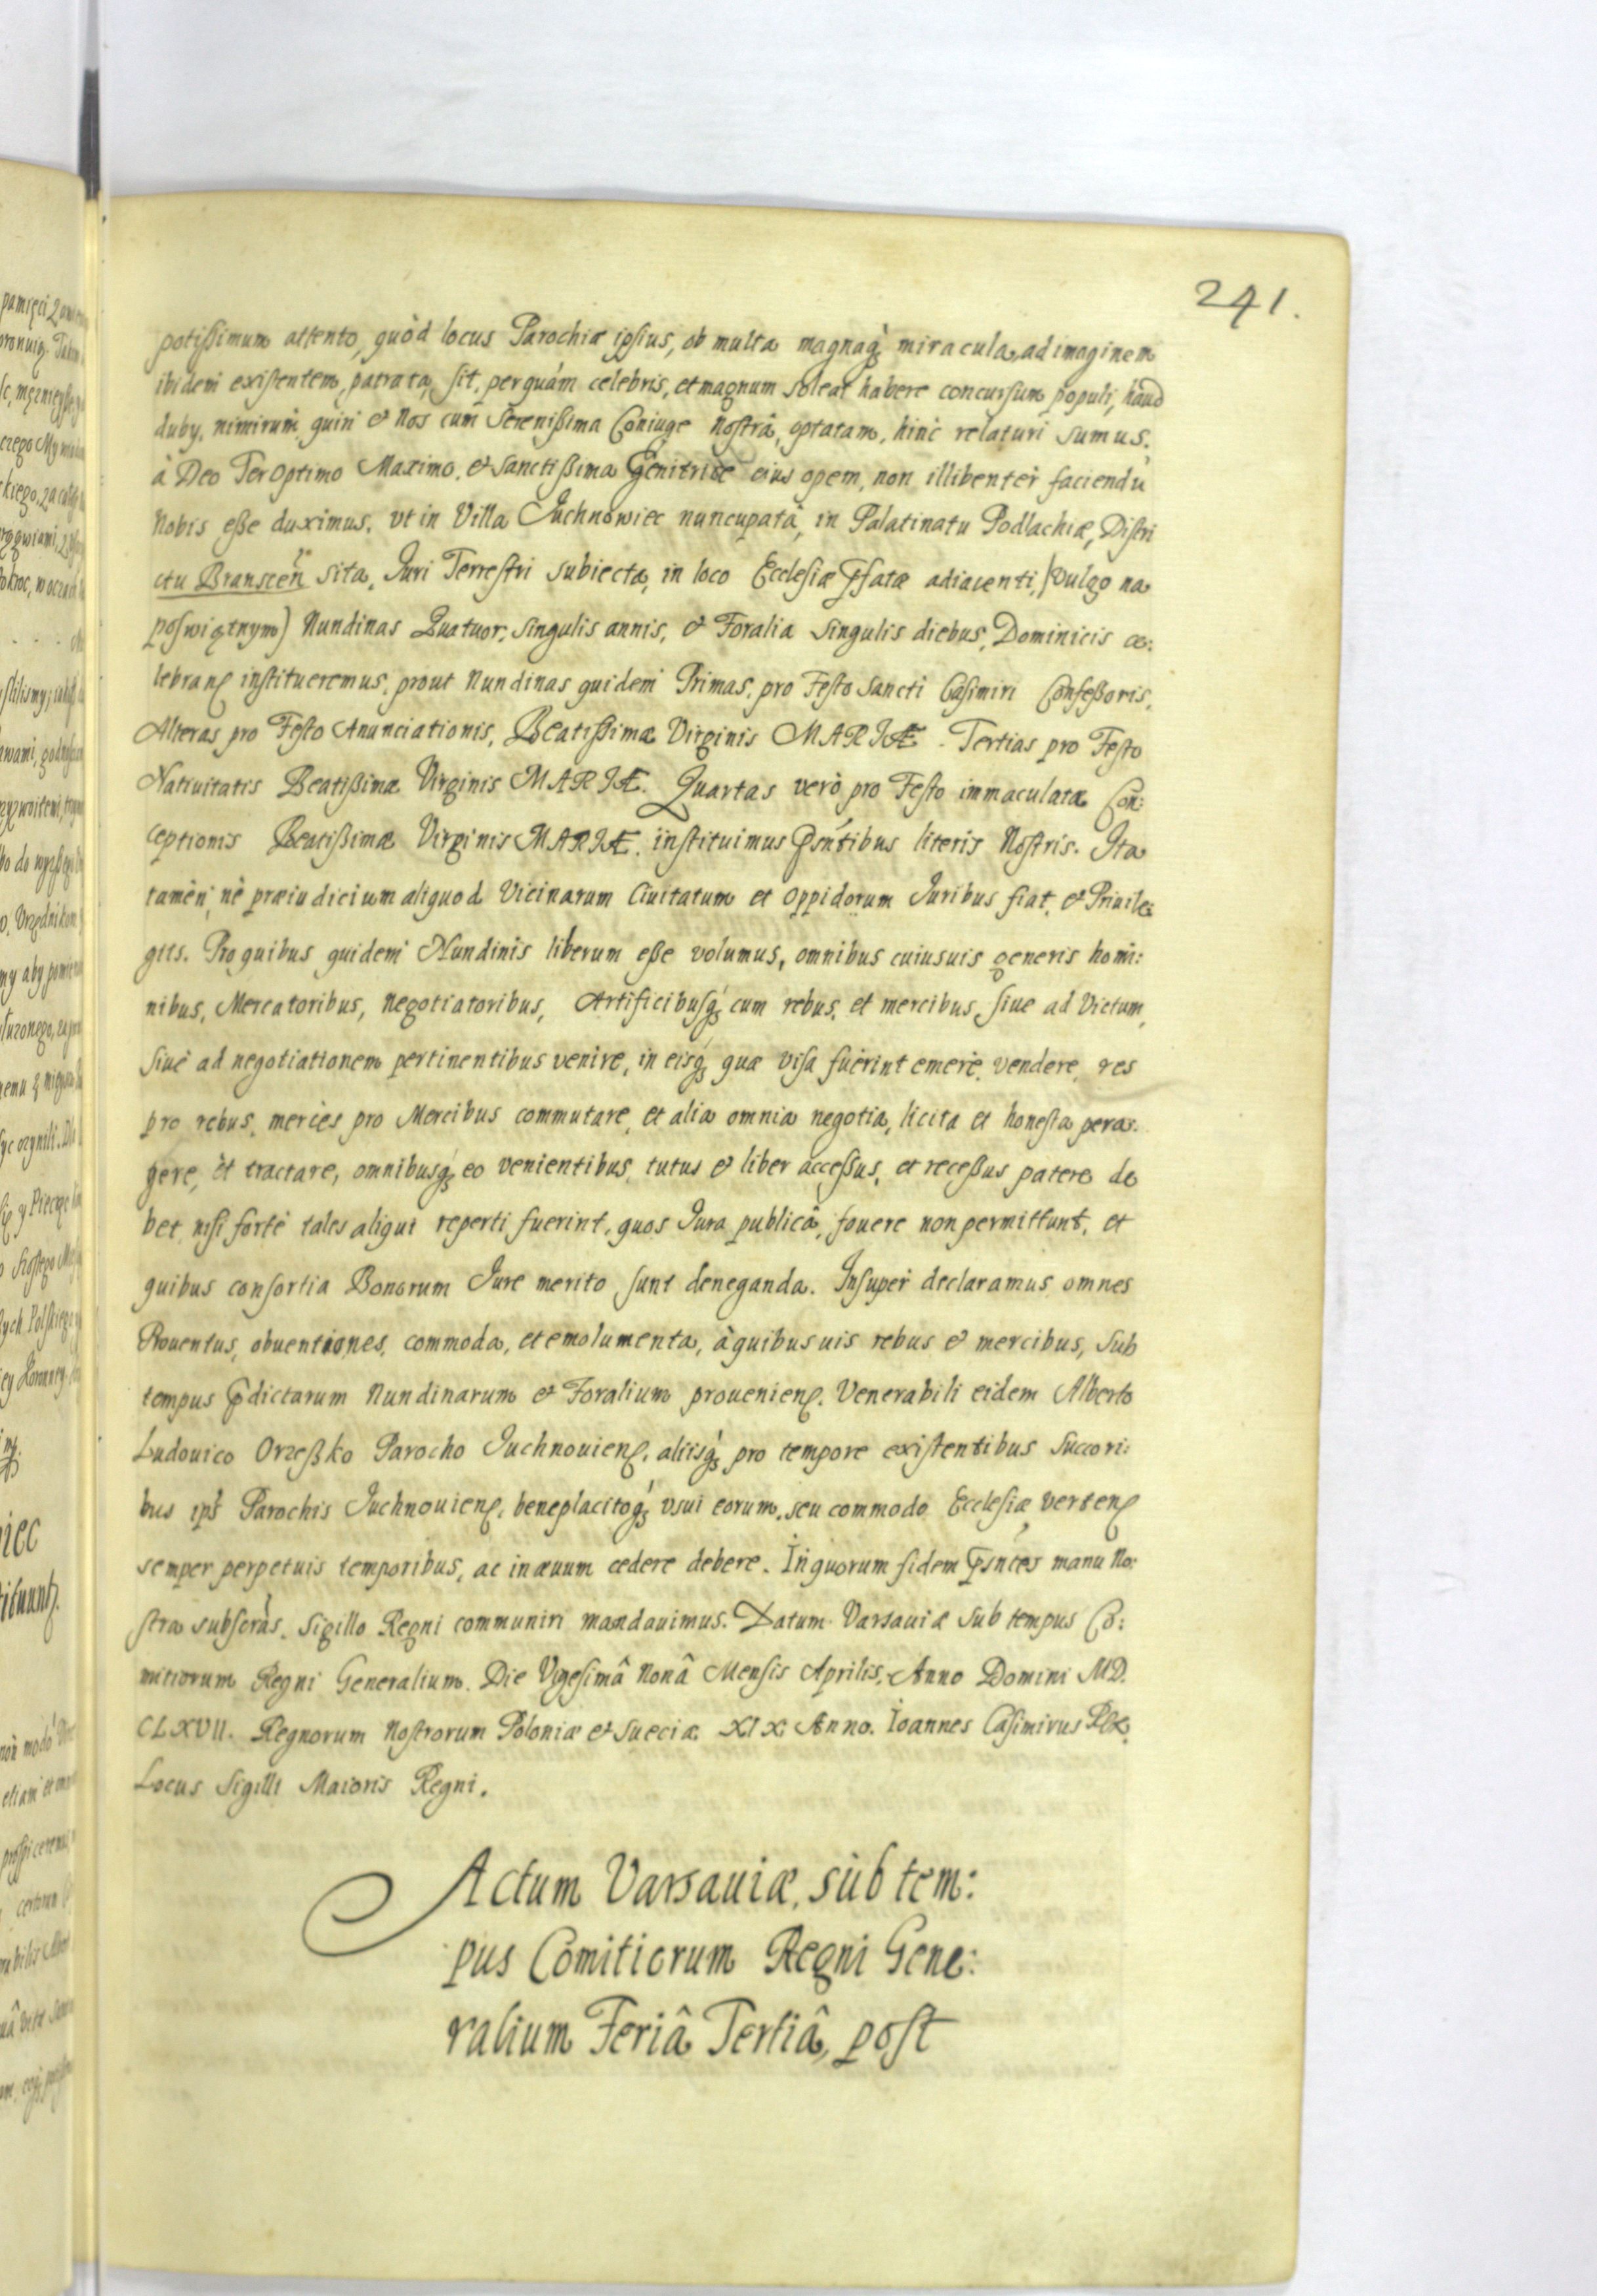 241.
potißimum attento, quòd locus Parochiæ ipsius, ob multa magnaq́; miracula, ad imaginem
ibidem existentem, patrata, sit, perquám celebris, et magnum soleat habere concursum populi, haud
duby, nimirum quin & Nos cum Serenißima Coniuge Nostrâ, optatam, hinc relaturi sumus,
à Deo Ter Optimo Maximo, & Sanctißima Genitrice eius opem, non illibenter faciendū
Nobis eße duximus, vt in Villa Juchnowiec nuncupatâ, in Palatinatu Podlachiæ, Distri
ctu Branscen̄ sita, Juri Terrestri subiecta, in loco Ecclesiæ p̄fatæ adiacenti, (vulgo na
poswiętnym) Nundinas Quatuor, singulis annis, & Foralia singulis diebus, Dominicis ce:
lebran: institueremus, prout Nundinas quidem Primas, pro Festo Sancti Casimiri Confeßoris,
Alteras pro Festo Anunciationis, Beatißimæ Virginis MARIÆ. Tertias pro Festo
Natiuitatis Beatißimæ Virginis MARIÆ. Quartas verò pro Festo immaculatæ Con:
ceptionis Beatißimæ Virginis MARIÆ. instituimus p̄sentibus literis Nostris. Ita
tamèn, nè præiudicium aliquod Vicinarum Ciuitatum et Oppidorum Juribus fiat, & Priuile:
giis. Pro quibus quidem Nundinis liberum eße volumus, omnibus cuiusuis generis homi:
nibus, Mercatoribus, Negotiatoribus, Artificibusq́; cum rebus, et mercibus, siue ad Victum,
siue ad negotiationem pertinentibus venire, in eisq́; quæ visa fuerint emere, vendere, res
pro rebus, merces pro Mercibus commutare, et alia omnia negotia, licita et honesta pera:
gere, et tractare, omnibusq́; eo venientibus, tutus & liber acceßus, et receßus patere de
bet, nisi fortè tales aliqui reperti fuerint, quos Jura publicâ, fouere non permittunt, et
quibus consortia Bonorum Jure merito sunt deneganda. Insuper declaramus omnes
Prouentus, obuentiones, commoda, et emolumenta, à quibusuis rebus & mercibus, sub
tempus p̄dictarum Nundinarum & Foralium prouenien: Venerabili eidem Alberto
Ludouico Orzeßko Parocho Juchnouien: aliisq́; pro tempore existentibus Succori:
bus ips̄ Parochis Juchnouien: beneplacitoq́; vsui eorum, seu commodo Ecclesiæ verten:
semper perpetuis temporibus, ac in æuum cedere debere. In quorum fidem p̄sntes manu No:
stra subscrās, Sigillo Regni communiri mandauimus. Datum Varsauiæ sub tempus Co:
mitiorum Regni Generalium. Die Vigesimâ Nonâ Mensis Aprilis, Anno Domini MD.
CLXVII. Regnorum Nostrorum Poloniæ & Sueciæ XIX Anno. Ioannes Casimirus Rex.
Locus Sigilli Maioris Regni.
Actum Varsauiæ, sub tem:
pus Comitiorum Regni Gene:
ralium Feriâ Tertiâ, post